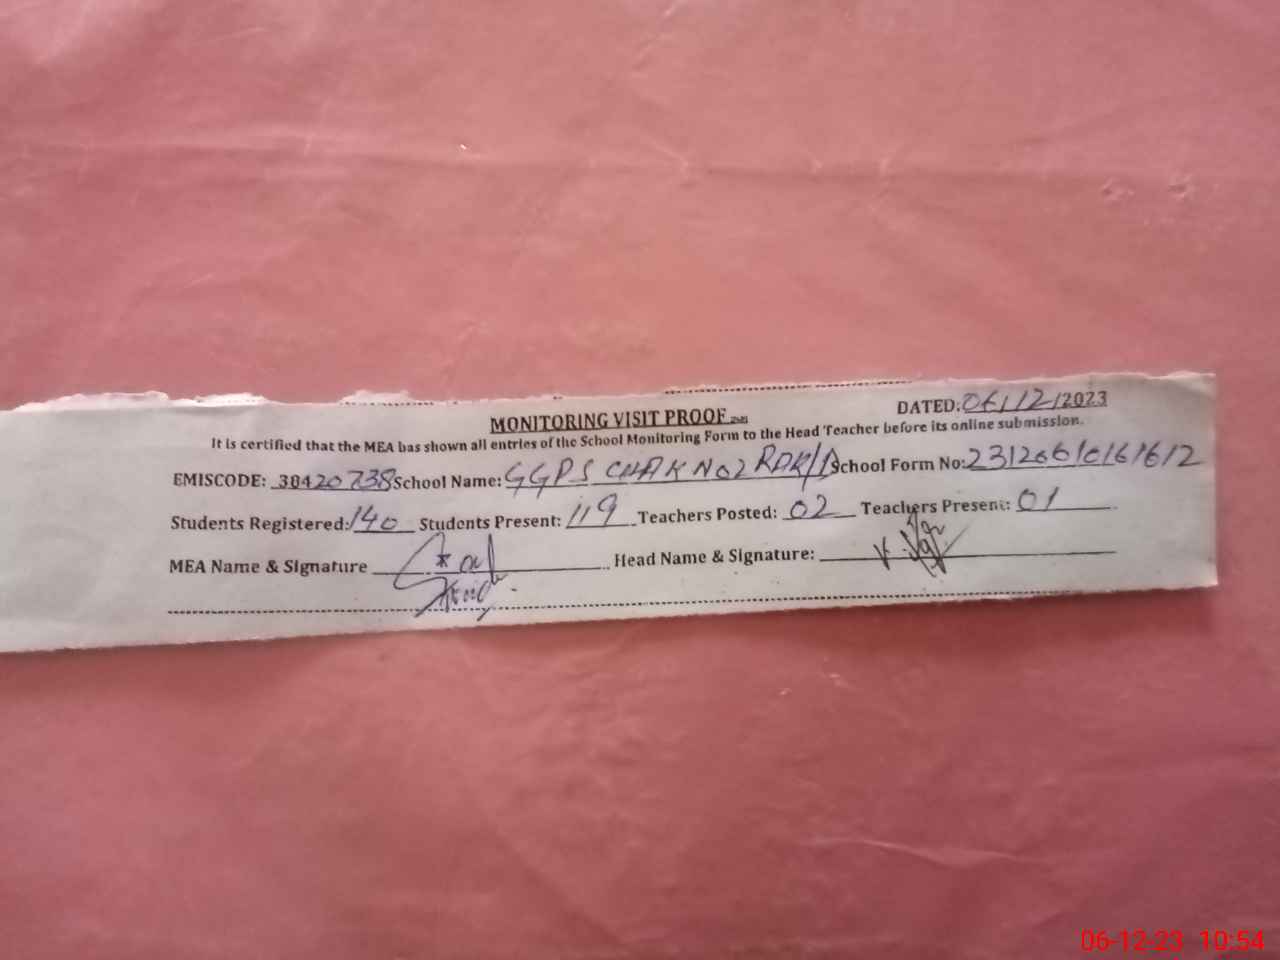 MONITORING VISIT PROOF
DATED: 06/12/2023
It is certified that the MEA has shown all entries of the School Monitoring Form to the Head Teacher before its online submission.
EMISCODE: 38420738 School Name: GGPS CHAK NO2 RDK/A School Form No: 23120610161612
Students Registered: 140 Students Present: 119 Teachers Posted: 02 Teachers Present: 01
MEA Name & Signature Head Name & Signature:
06-12-23 10:54